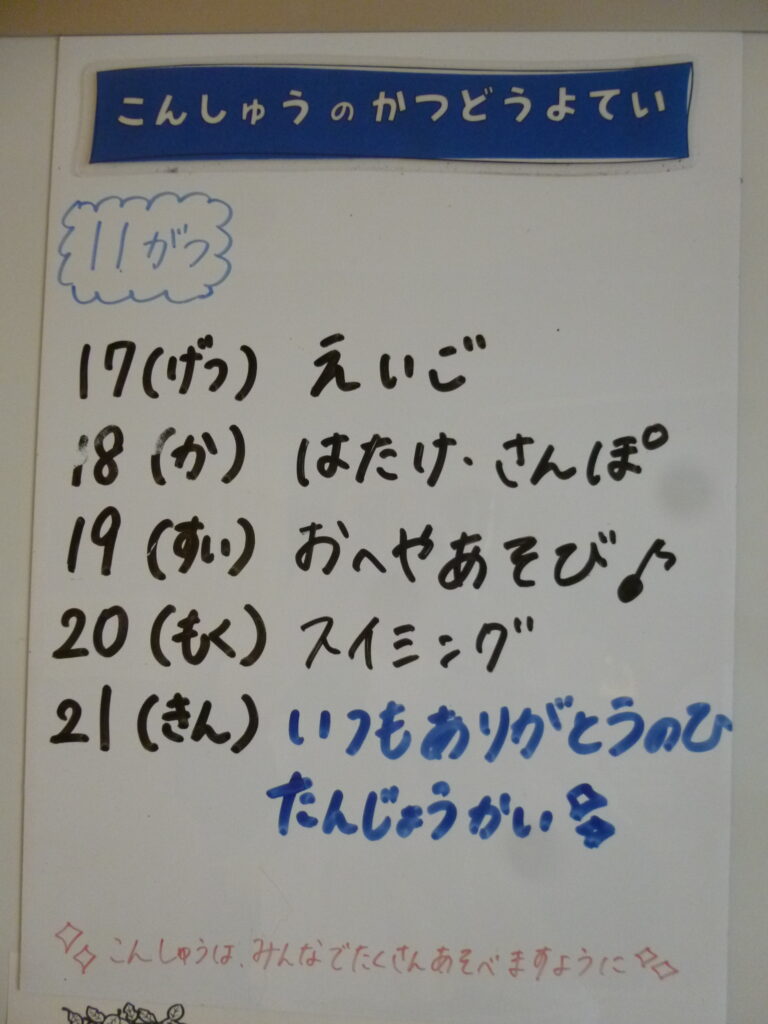 こんしゅうのかつどうよてい
11がつ
17(げつ) えいご
18(か) はたけ・さんぽ
19(すい) おへやあそび♪
20(もく) スイミング
21(きん) いつもありがとうのひ
たんじょうかい
こんしゅうは、みんなでたくさんあそべますように